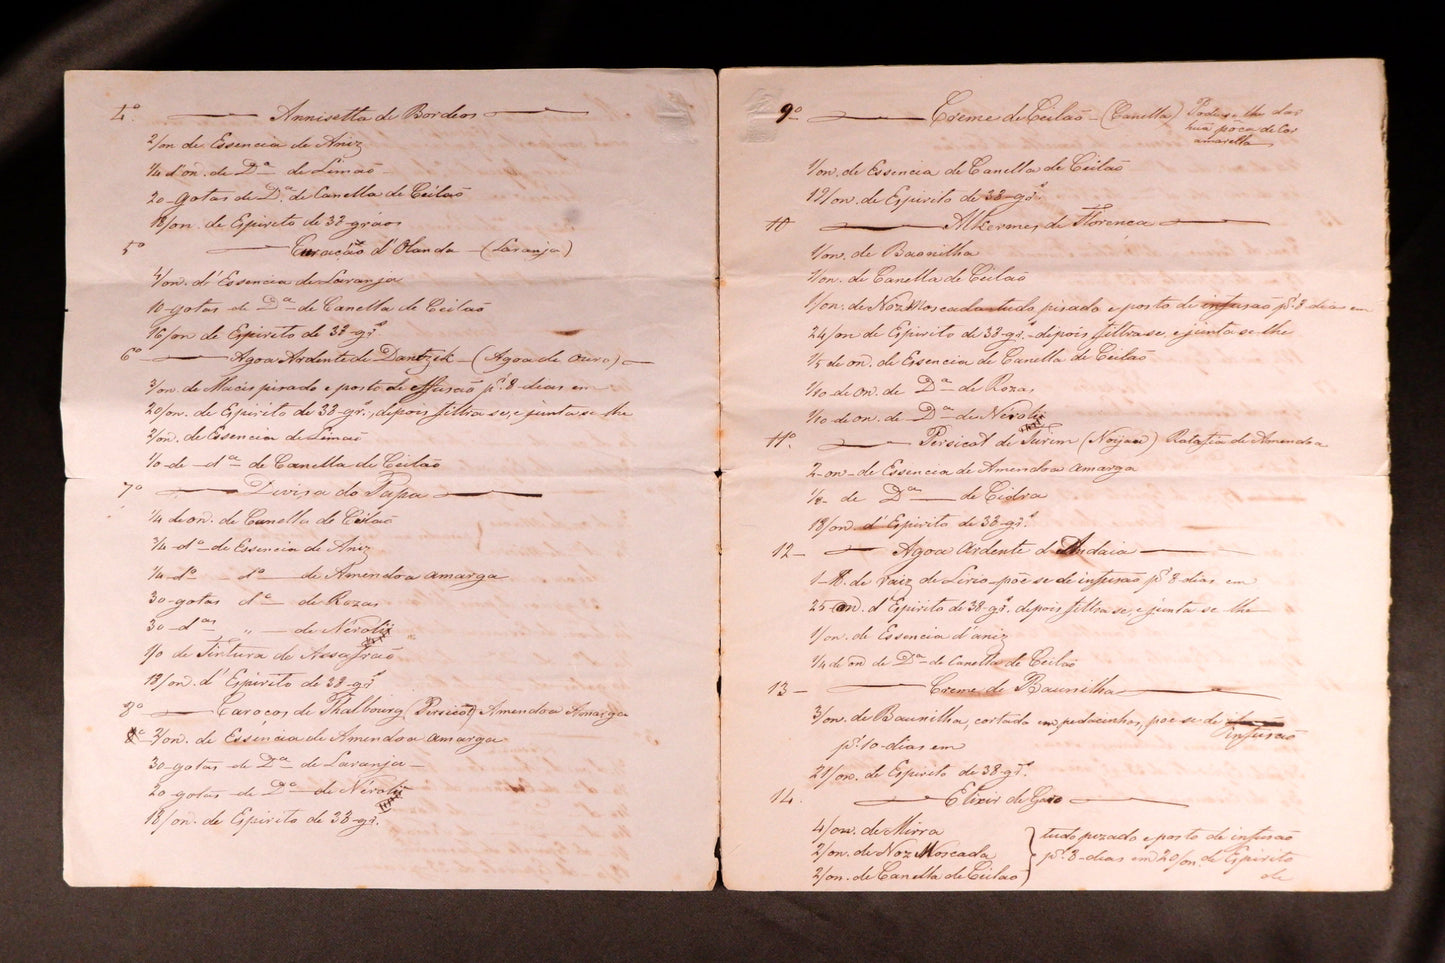 4º Annisetta de Bordeos
2/on de Essencia de Aniz
1/4 d'on. de Dª de Limão
20 gotas de Dª de Canella de Ceilão
18/on. de Espirito de 38 gráos
5º Curação d'Olanda (Laranja)
4/on. d'Essencia de Laranja
10 gotas de Dª de Canella de Ceilão
16/on de Espirito de 38 gr.ˢ
6º Agoa Ardente de Dantzik (Agoa de Ouro)
3/on. de Macis pisado e posto de effusão p.ʳ 8 dias em
20/on. de Espirito de 38 gr.ˢ, depois filtra se, e junta-se lhe
2/on. de Essencia de Limão
1/0 de dª de Canella de Ceilão
7º Divisa do Papa
1/4 de on. de Canella de Ceilão
3/4 dª de Essencia de Aniz
1/4 dº dº de Amendoa amarga
30 gotas dª de Rozas
30 dªˢ " de Néroly
1/0 de Tintura de Assafrão
18/on. d'Espirito de 38 gr.ˢ
8º Caroços de Phalbourg (Persicot) Amendoa Amarga
3/on. de Essencia de Amendoa amarga
30 gotas de Dª de Laranja
20 gotas de Dª de Néroly
18/on. de Espirito de 38 gr.
9º Creme de Ceilão (Canella) Pode-se lhe dar
huã poca de Cor
amarella
1/on. de Essencia de Canella de Ceilão
12/on. de Espirito de 38 gr.ˢ
10 Alkermes de Florença
1/on. de Baonilha
1/on. de Canella de Ceilão
1/on. de Noz Moscada tudo pisado e posto de infusão p.ʳ 8 dias em
24/on de Espirito de 38 gr.ˢ depois filtra se, e junta se lhe
1/5 de on. de Essencia de Canella de Ceilão
1/10 de on. de Dª de Rozas
1/10 de on. de Dª de Néroly
11º. Persicot de Turin (Noyau) Ratafia de Amendoa
2 on de Essencia de Amendoa amarga
1/8 de Dª de Cidra
18/on. d'Espirito de 38 gr.ˢ
12 Agoa ardente d'Andaia
1 de raiz de Lirio põe se de infusão p.ʳ 8 dias em
25 on. d'Espirito de 38 gr.ˢ depois filtra se, e junta se lhe
1/on. de Essencia d'aniz
1/4 de on de Dª de Canella de Ceilão
13 Creme de Baunilha
3/on. de Baunilha, cortada em pedacinhos, põe se de infusão
p.ʳ 10 dias em
21/on. de Espirito de 38 gr.ˢ
14. Elixir de Garo
4/on. de Mirra
2/on. de Noz Moscada
2/on. de Canella de Ceilão
tudo pizado e posto de infusão
p.ʳ 8 dias em 20/on. de Espirito
de